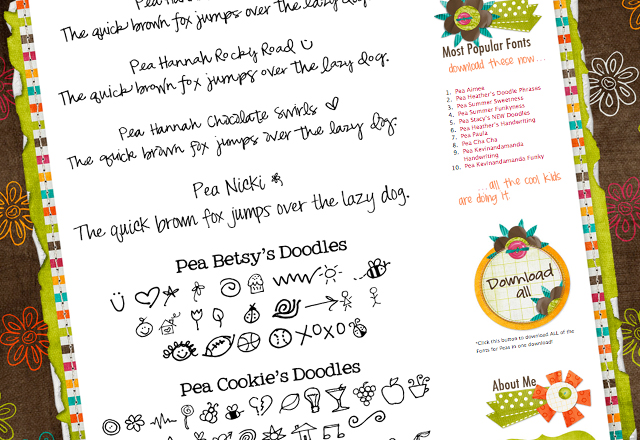 The quick brown fox jumps over the lazy dog.
Pea Hannah Rocky Road
The quick brown fox jumps over the lazy dog.
Pea Hannah Chocolate Swirls
The quick brown fox jumps over the lazy dog.
Pea Nicki
The quick brown fox jumps over the lazy dog.
Pea Betsy's Doodles
XOXO
Pea Cookie's Doodles
Most Popular Fonts
download these now...
1. Pea Aimee
2. Pea Heather's Doodle Phrases
3. Pea Summer Sweetness
4. Pea Summer Funkyness
5. Pea Stacy's NEW Doodles
6. Pea Heather's Handwriting
7. Pea Paula
8. Pea Cha Cha
9. Pea Kevinandamanda
Handwriting
10. Pea Kevinandamanda Funky
...all the cool kids
are doing it.
Download
all
*Click this button to download ALL of the
Fonts for Peas in one download!
About Me